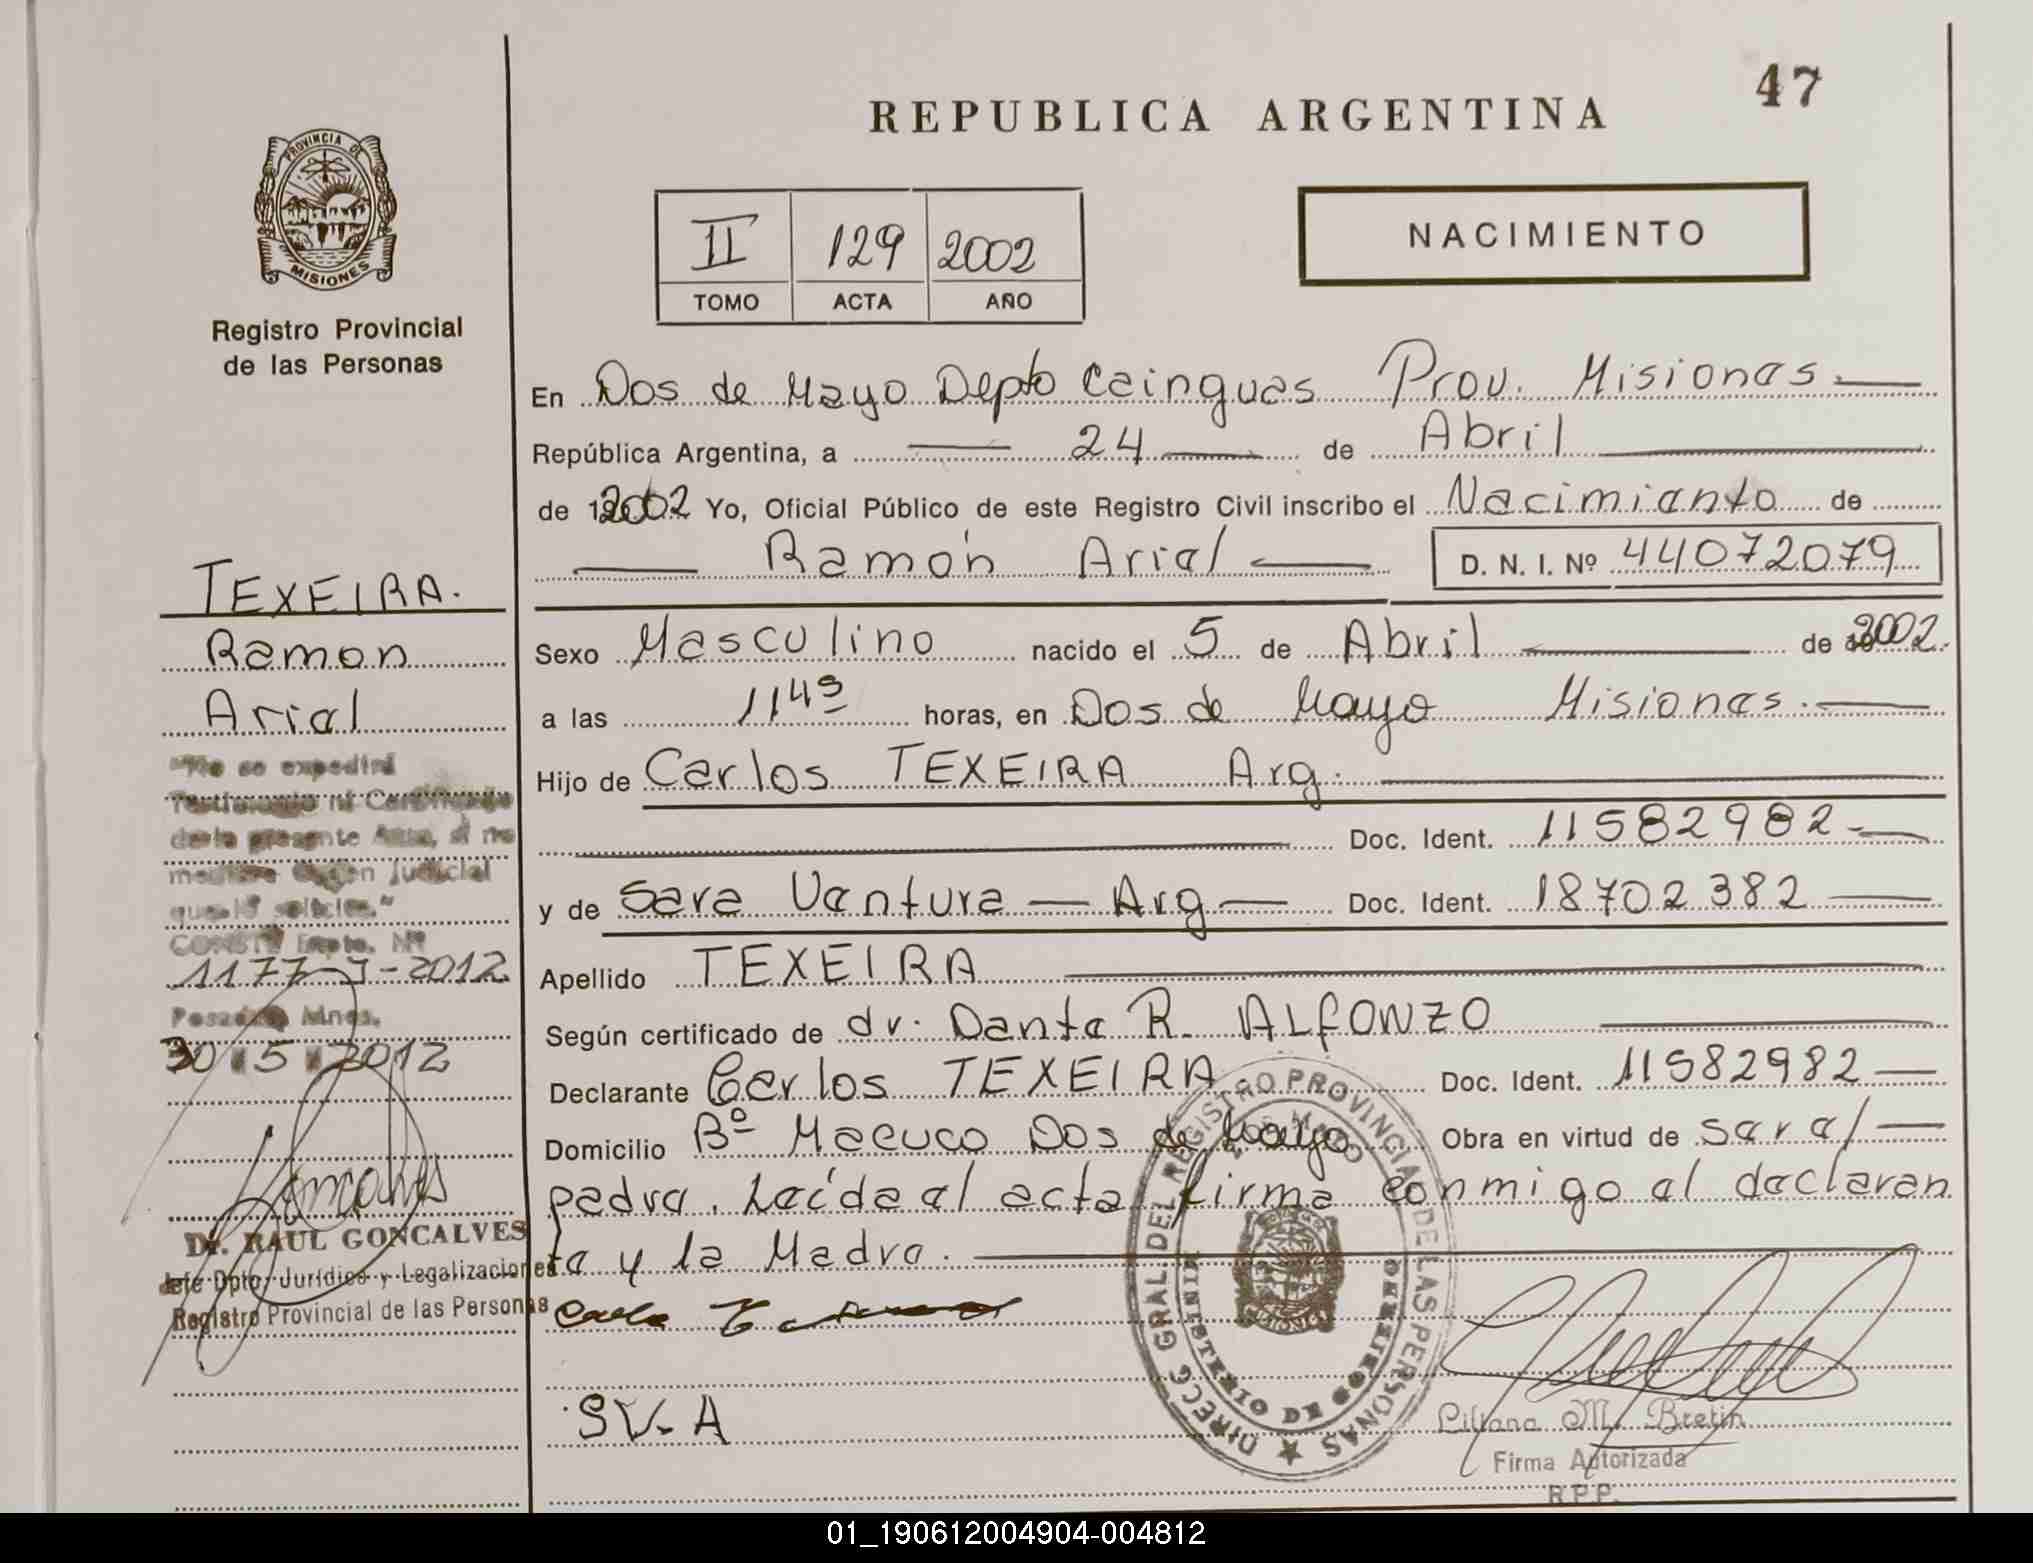 47
REPUBLICA ARGENTINA
PROVINCIA DE
MISIONES
Registro Provincial
de las Personas
II 129 2002
TOMO ACTA AÑO
NACIMIENTO
En Dos de Mayo Depto Cainguas Prov. Misiones
República Argentina, a 24 de Abril
de 2002 Yo, Oficial Público de este Registro Civil inscribo el Nacimiento de
Ramón Ariel D. N. I. Nº 44072079
Sexo Masculino nacido el 5 de Abril de 2002.
a las 11 45 horas, en Dos de Mayo Misiones.
Hijo de Carlos TEXEIRA Arg.
Doc. Ident. 11582982
y de Sara Ventura Arg Doc. Ident. 18702382
Apellido TEXEIRA
Según certificado de dr. Dante R. ALFONZO
Declarante Carlos TEXEIRA Doc. Ident. 11582982
Domicilio Bº Macuco Dos de Mayo Obra en virtud de ser el
padre. Leída el acta firma conmigo el declaran
te y la Madre.
SV.A
TEXEIRA.
Ramon
Ariel
"No se expedirá
Testimonio ni Certificado
de la presente Acta, si no
mediare Orden Judicial
que lo solicite."
CONSTE Expte. Nº
1177-J-2012
Posadas, Mnes.
30 5 2012
Goncalves
Dr. RAUL GONCALVES
Jefe Dpto. Jurídico y Legalizaciones
Registro Provincial de las Personas
DIRECC. GRAL DEL REGISTRO PROVINCIAL DE LAS PERSONAS
MINISTERIO DE GOBIERNO
Liliana M. Bretin
Firma Autorizada
R.P.P.
01_190612004904-004812